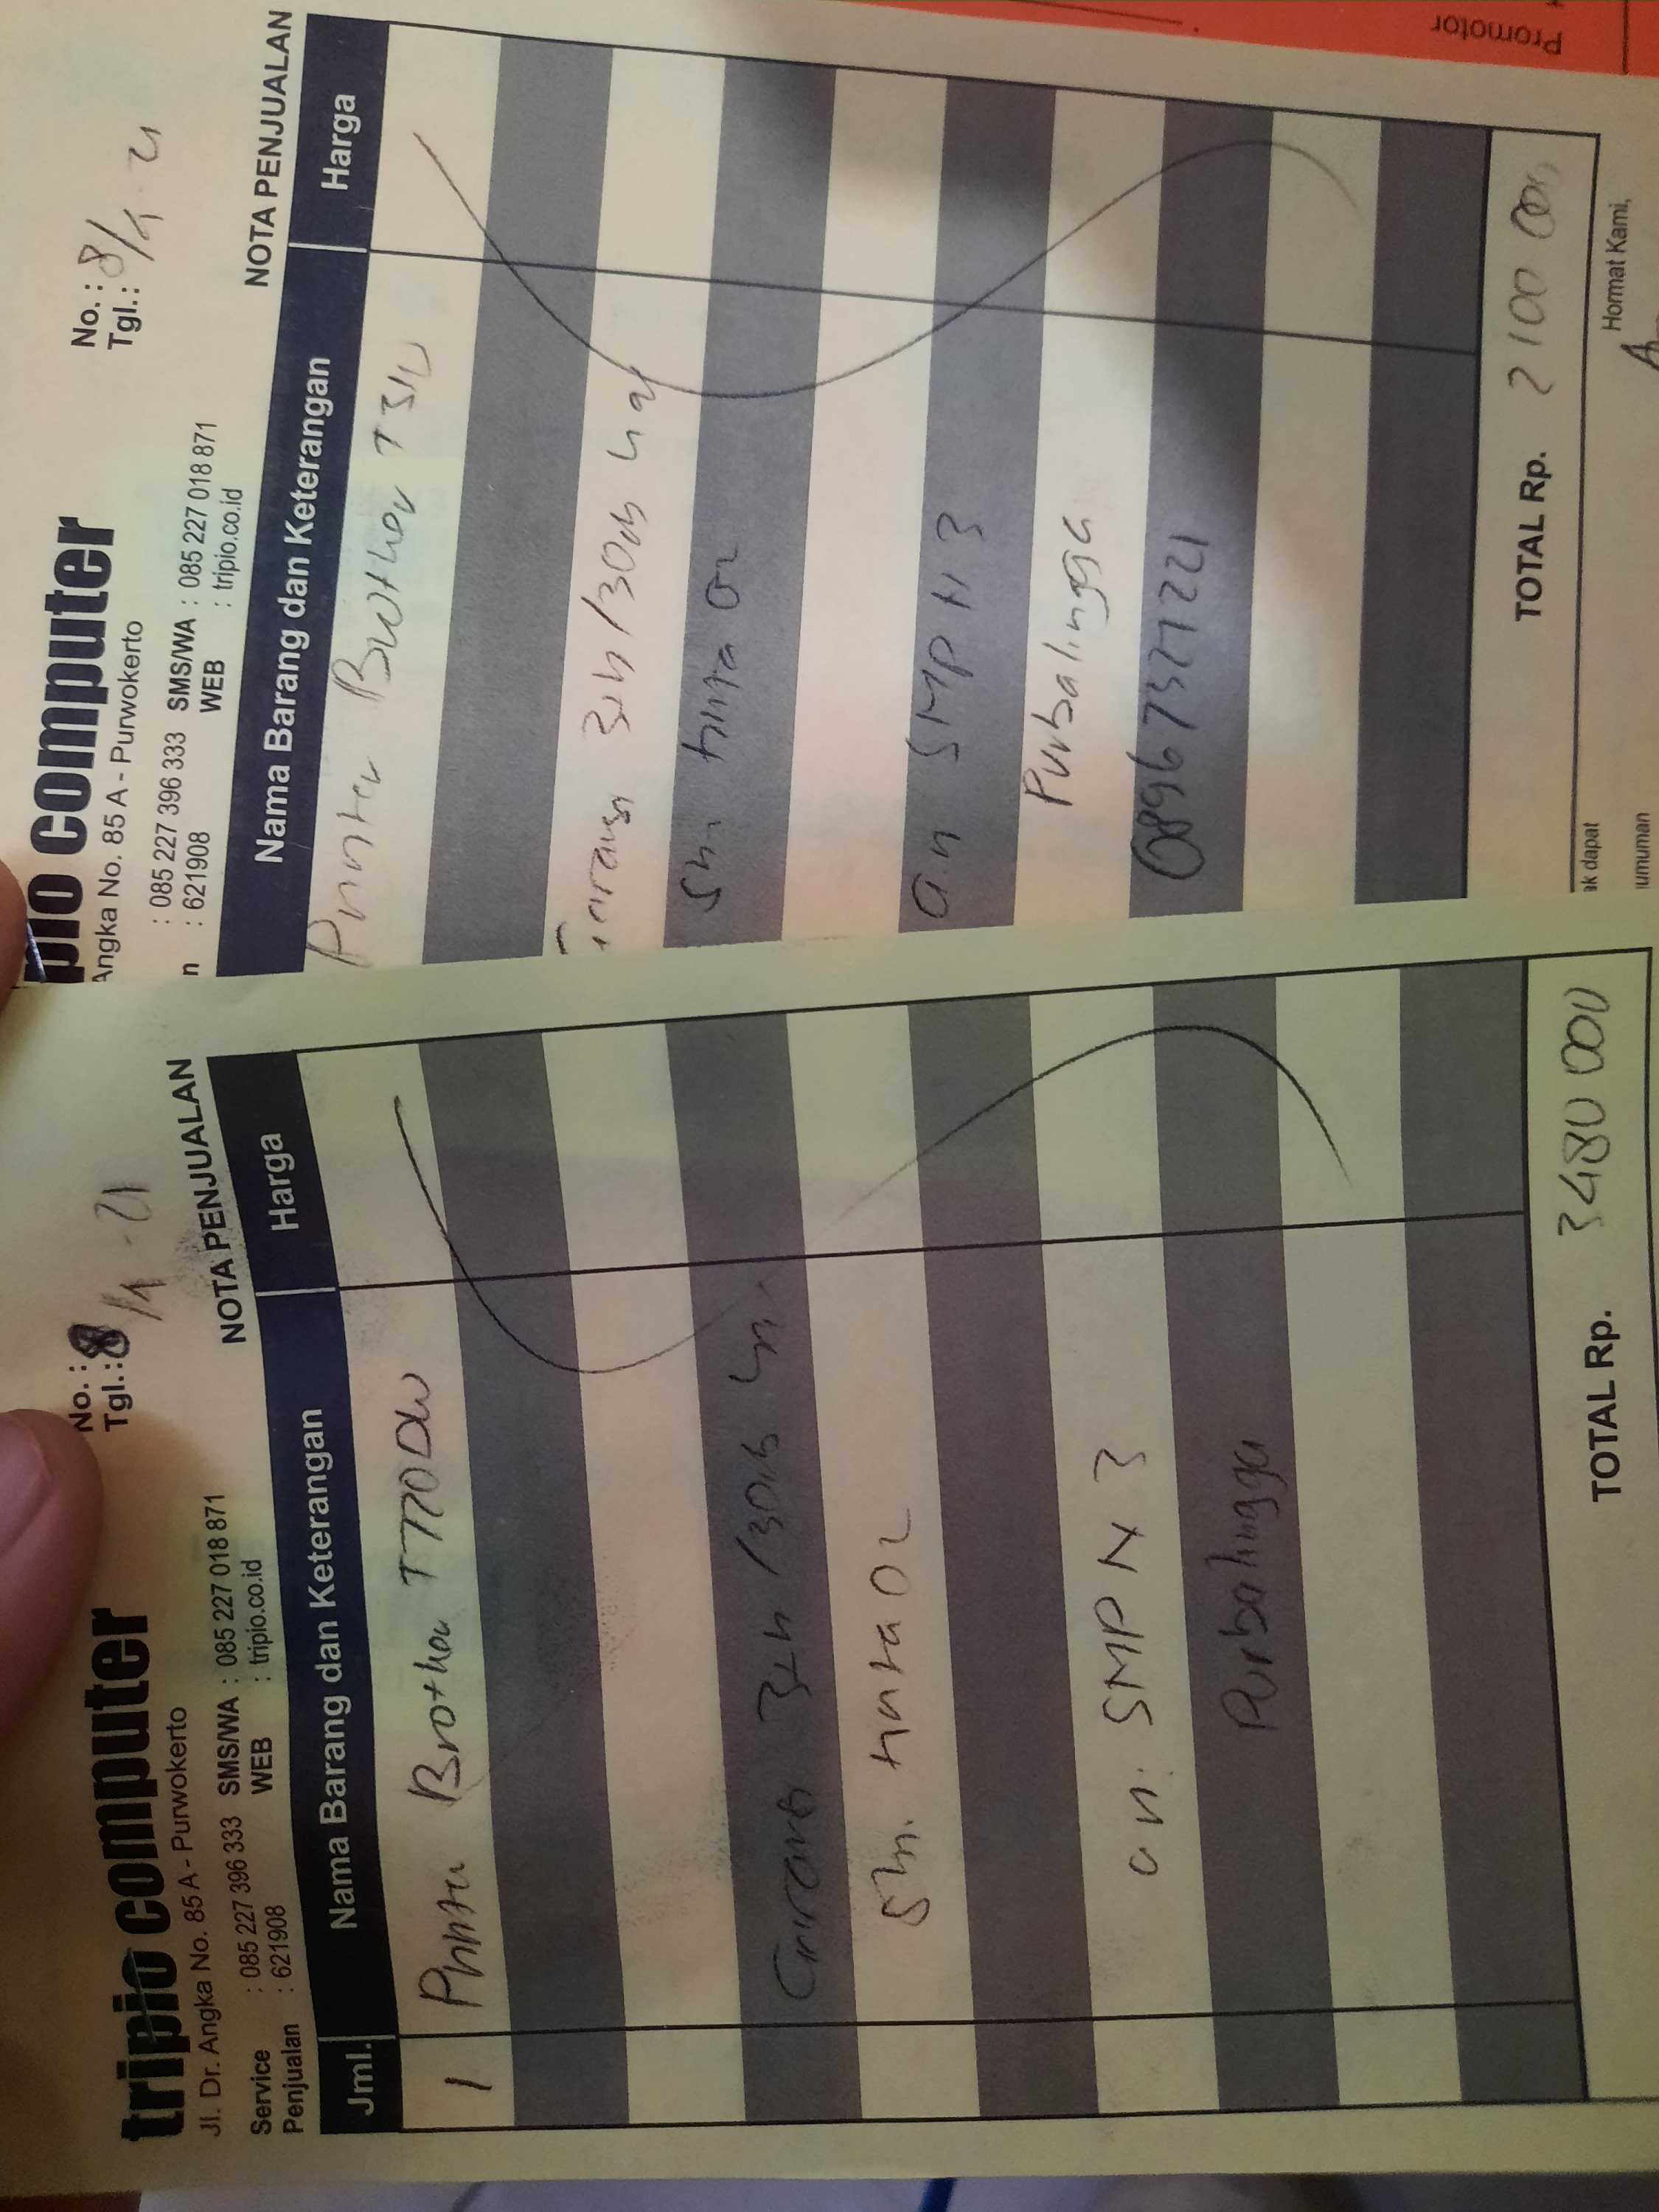 tripio computer
Jl. Dr. Angka No. 85 A - Purwokerto
Service : 085 227 396 333 SMS/WA : 085 227 018 871
Penjualan : 621908 WEB : tripio.co.id
No. :
Tgl. : 8/1-21
NOTA PENJUALAN
Jml. Nama Barang dan Keterangan Harga
1 Printer Brother T770DW
Garansi 3th/30rb
5th.
an. SMP N 3
Purbalingga
TOTAL Rp. 3480 000
pio computer
Angka No. 85 A - Purwokerto
: 085 227 396 333 SMS/WA : 085 227 018 871
n : 621908 WEB : tripio.co.id
No. :
Tgl. : 8/1-21
NOTA PENJUALAN
Nama Barang dan Keterangan Harga
Printer Brother
3th/30rb
a.n SMP N 3
Purbalingga
TOTAL Rp. 2100 000
ak dapat
umuman
Hormat Kami,
Promotor